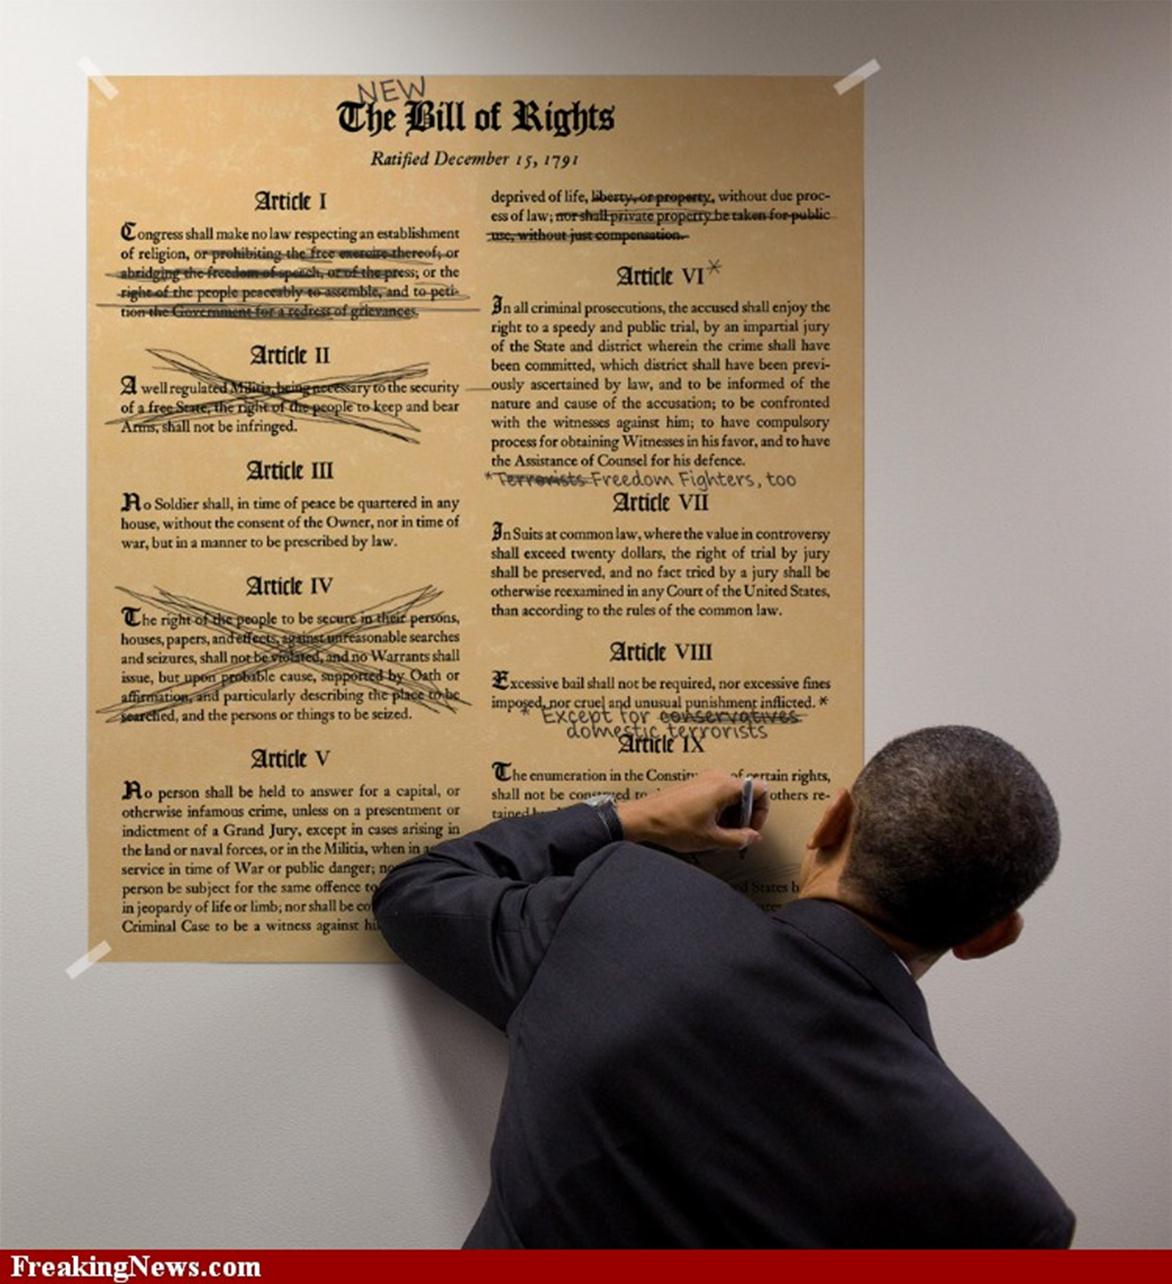 NEW
The Bill of Rights
Ratified December 15, 1791
Article I
Congress shall make no law respecting an establishment
of religion, or prohibiting the free exercise thereof; or
abridging the freedom of speech, or of the press; or the
right of the people peaceably to assemble, and to peti-
tion the Government for a redress of grievances.
Article II
A well regulated Militia, being necessary to the security
of a free State, the right of the people to keep and bear
Arms, shall not be infringed.
Article III
No Soldier shall, in time of peace be quartered in any
house, without the consent of the Owner, nor in time of
war, but in a manner to be prescribed by law.
Article IV
The right of the people to be secure in their persons,
houses, papers, and effects, against unreasonable searches
and seizures, shall not be violated, and no Warrants shall
issue, but upon probable cause, supported by Oath or
affirmation, and particularly describing the place to be
searched, and the persons or things to be seized.
Article V
No person shall be held to answer for a capital, or
otherwise infamous crime, unless on a presentment or
indictment of a Grand Jury, except in cases arising in
the land or naval forces, or in the Militia, when in
service in time of War or public danger;
person be subject for the same offence to
in jeopardy of life or limb; nor shall be
Criminal Case to be a witness against
deprived of life, liberty, or property, without due proc-
ess of law; nor shall private property be taken for public
use, without just compensation.
Article VI*
In all criminal prosecutions, the accused shall enjoy the
right to a speedy and public trial, by an impartial jury
of the State and district wherein the crime shall have
been committed, which district shall have been previ-
ously ascertained by law, and to be informed of the
nature and cause of the accusation; to be confronted
with the witnesses against him; to have compulsory
process for obtaining Witnesses in his favor, and to have
the Assistance of Counsel for his defence.
*Terrorists Freedom Fighters, too
Article VII
In Suits at common law, where the value in controversy
shall exceed twenty dollars, the right of trial by jury
shall be preserved, and no fact tried by a jury shall be
otherwise reexamined in any Court of the United States,
than according to the rules of the common law.
Article VIII
Excessive bail shall not be required, nor excessive fines
imposed, nor cruel and unusual punishment inflicted. *
* Except for conservatives
domestic terrorists
Article IX
The enumeration in the of certain rights,
shall not be others re-
States
FreakingNews.com